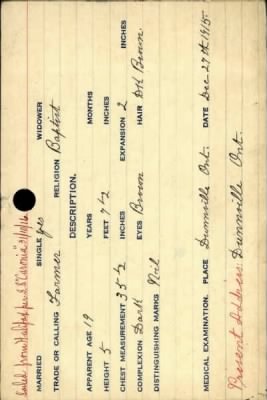 Sailed from Halifax per S.S "Caronia"
MARRIED SINGLE yes WIDOWER
TRADE OR CALLING Farmer RELIGION Baptist
DESCRIPTION.
APPARENT AGE 19 YEARS MONTHS
HEIGHT 5 FEET 7 1/2 INCHES
CHEST MEASUREMENT 35 1/2 INCHES EXPANSION 2 INCHES
COMPLEXION Dark EYES Brown HAIR Dk Brown
DISTINGUISHING MARKS Nil
MEDICAL EXAMINATION. PLACE Dunnville Ont. DATE Dec 27th 1915
Present Address: Dunnville Ont.